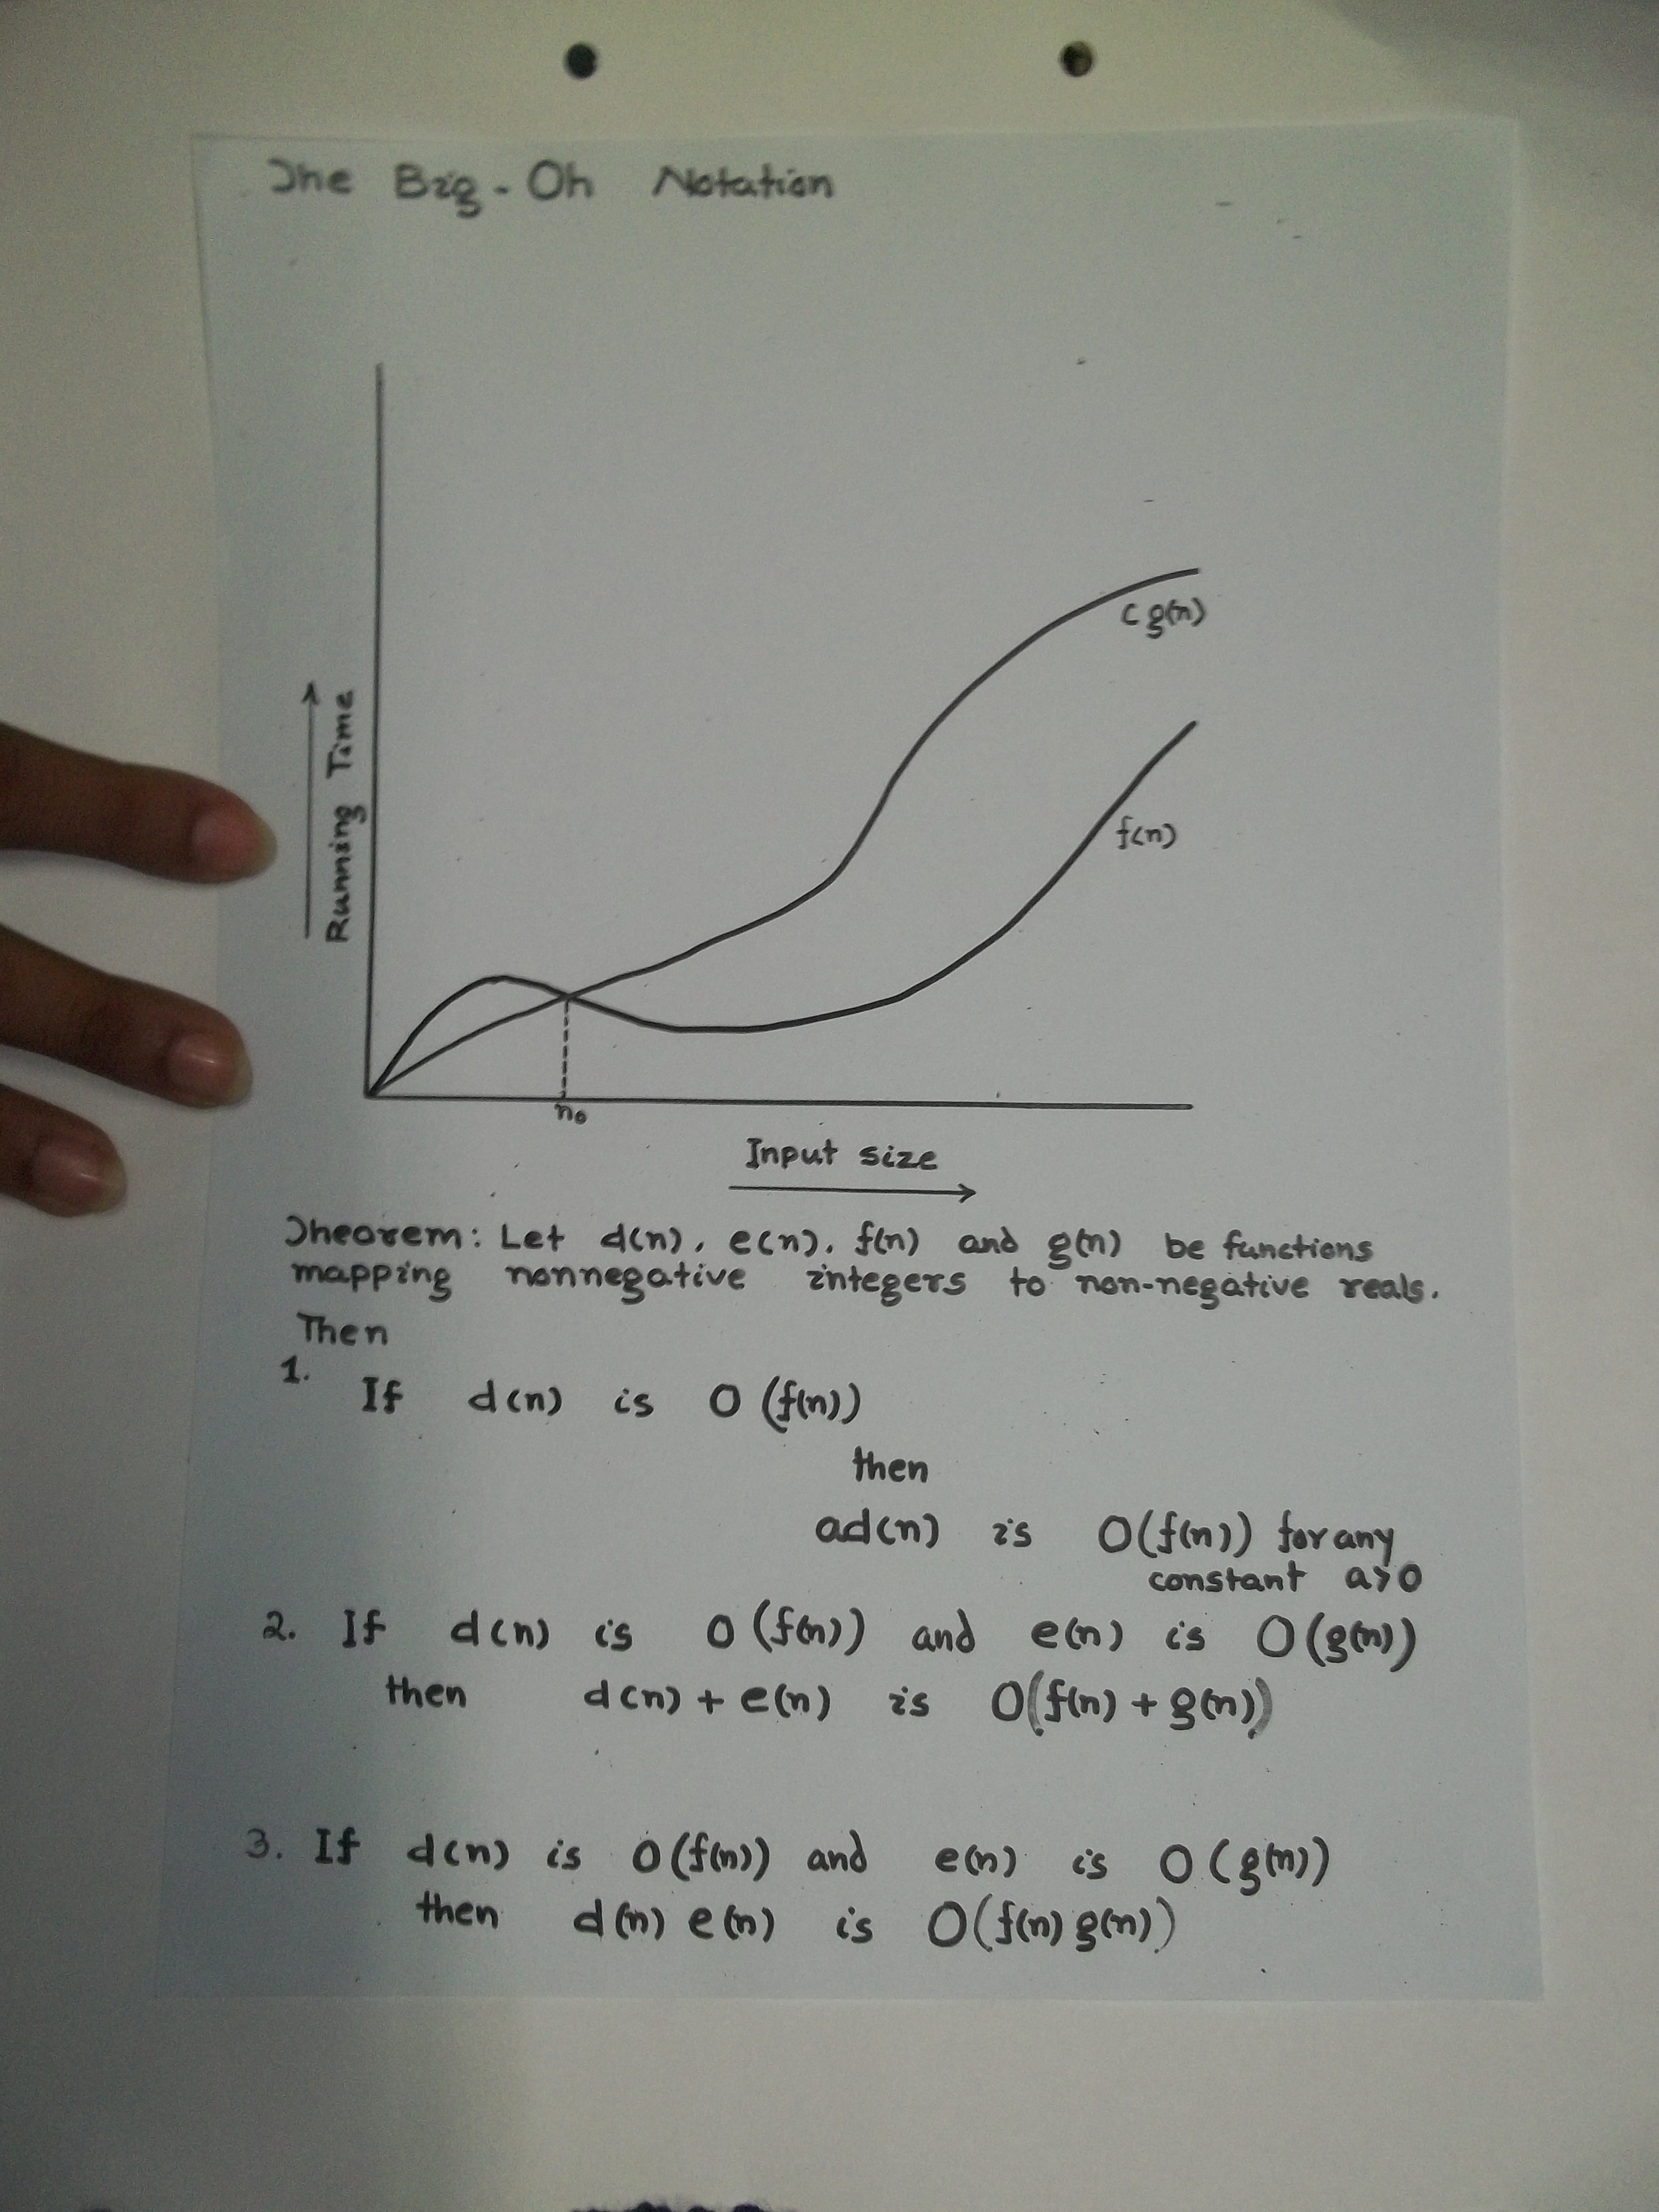 The Big-Oh Notation
c g(n)
f(n)
Running Time
n₀
Input size
Theorem: Let d(n), e(n), f(n) and g(n) be functions
mapping nonnegative integers to non-negative reals.
Then
1.
If d(n) is O (f(n))
then
ad(n) is O(f(n)) for any
constant a>0
2. If d(n) is O (f(n)) and e(n) is O(g(n))
then d(n) + e(n) is O(f(n) + g(n))
3. If d(n) is O(f(n)) and e(n) is O (g(n))
then d(n) e(n) is O(f(n) g(n))